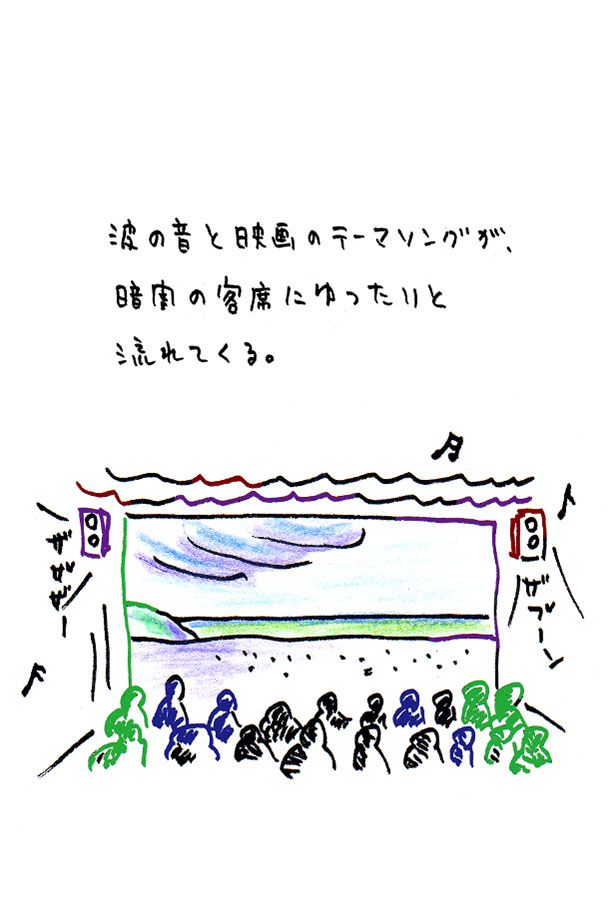 波の音と映画のテーマソングが、
暗闇の客席にゆったりと
流れてくる。
ザザザー
ザブーン